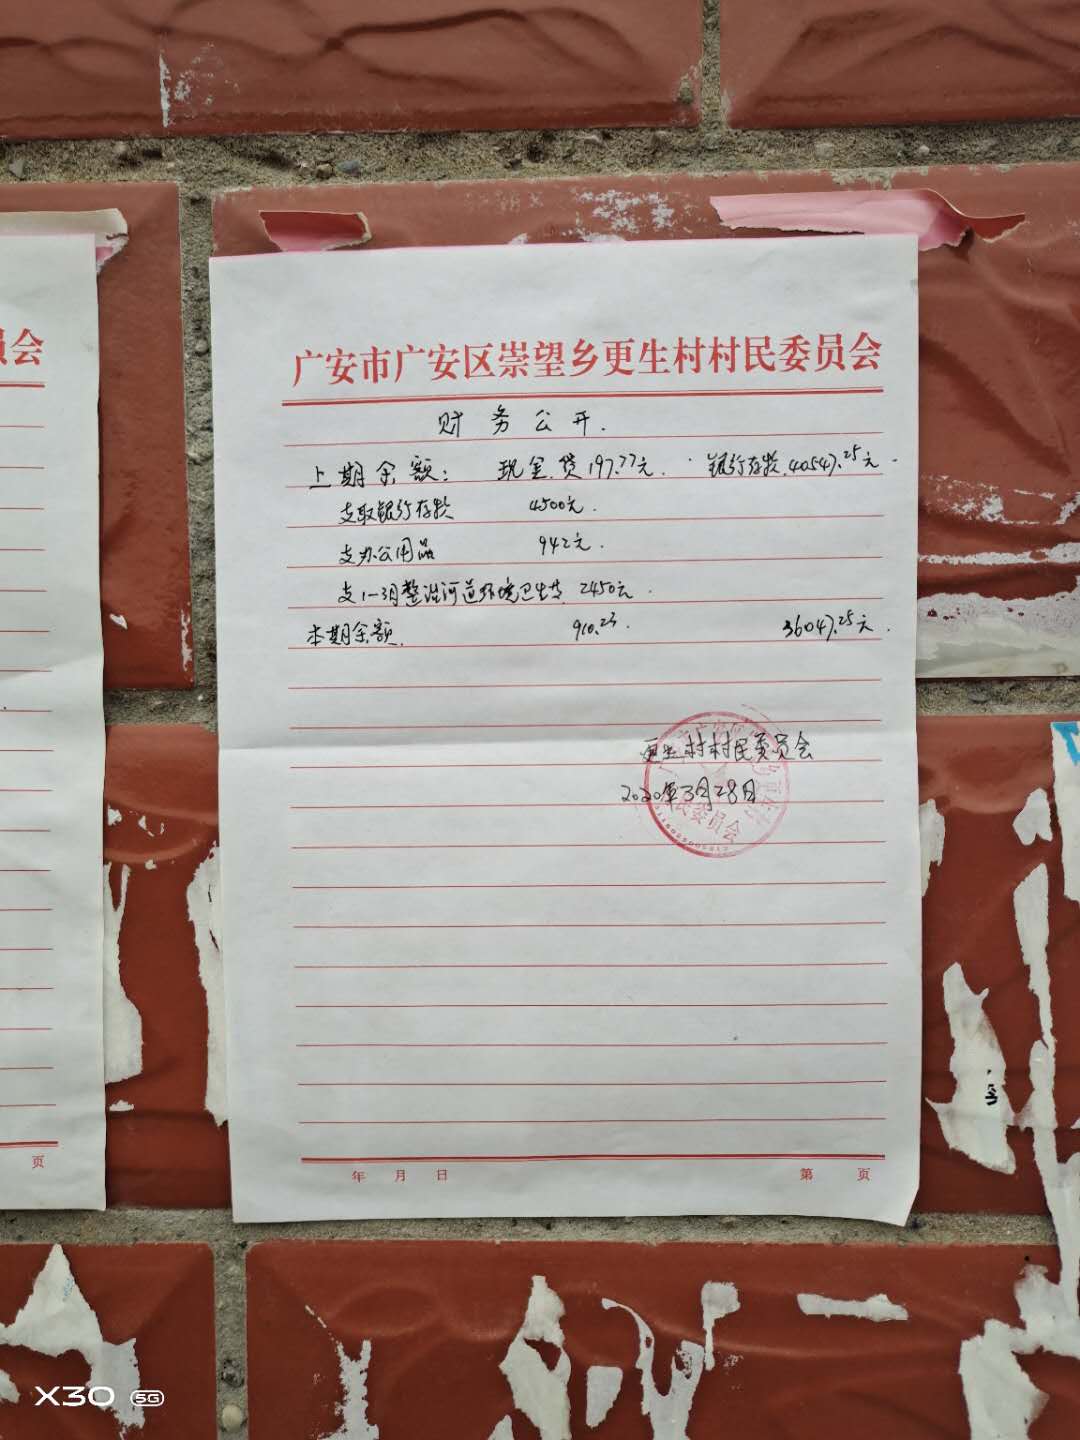 员会
广安市广安区崇望乡更生村村民委员会
财务公开.
上期余额: 现金.贷197.77元. 银行存款.40547.25元.
支取银行存款 4500元.
支办公用品 942元.
支1-3月整治河道环境卫生费 2450元.
本期余额. 910.23. 36047.25元.
更生村村民委员会
2020年3月28日
民委员会
页
年 月 日 第 页
X30 5G